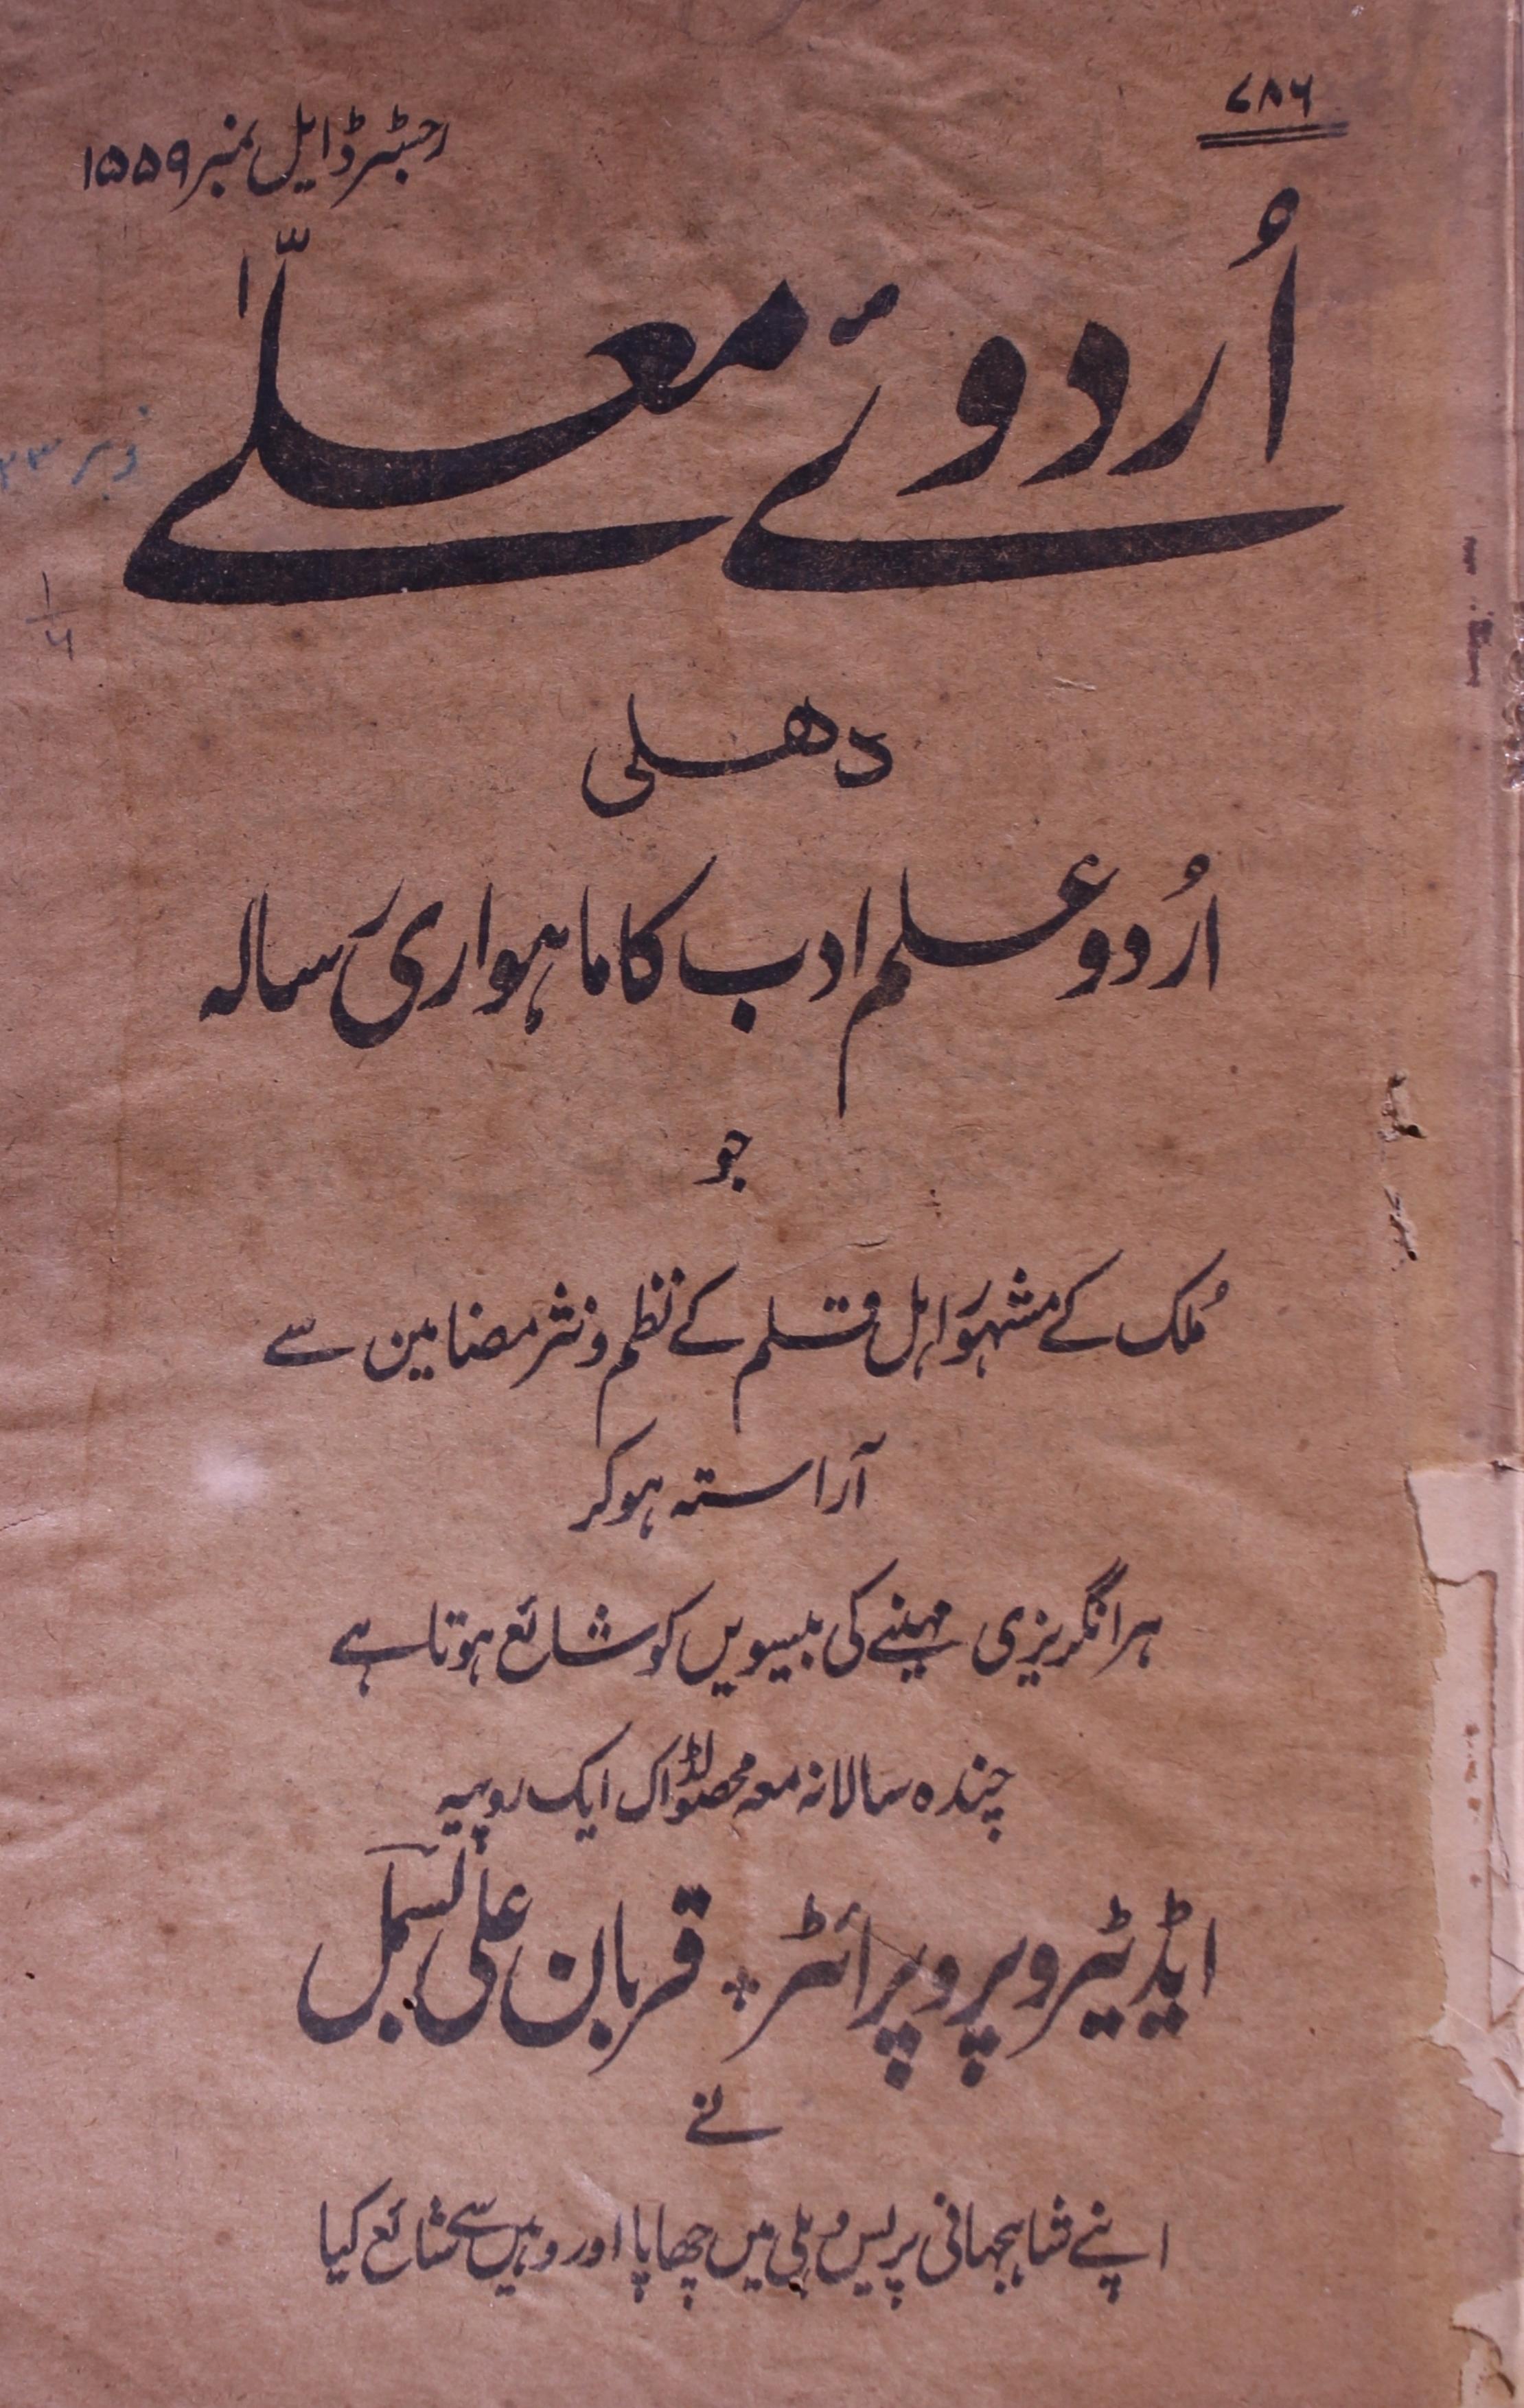 ۷۸۶
رجسٹرڈ ایل نمبر ۱۵۵۹
اُردوئے معلّٰے
دھلی
اُردو علم ادب کا ماہواری رسالہ
جو
مُلک کے مشہور اہل قلم کے نظم و نثر مضامین سے
آراستہ ہوکر
ہر انگریزی مہینے کی بیسویں کو شائع ہوتا ہے
چندہ سالانہ معہ محصولڈاک ایک روپیہ
ایڈیٹر و پروپرائٹر قربان علی بسمل
نے
اپنے شاہجہانی پریس دہلی میں چھاپا اور وہیں سے شائع کیا